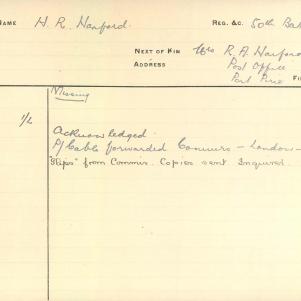 NAME H. R. Hanford. REG. &C. 50th Bat
NEXT OF KIN Mrs R. A. Hanford
ADDRESS Post Office
Port Pirie
Missing
1/2 Acknowledged.
P/Cable forwarded Commrs - London -
"Slips" from Commrs. Copies sent Inquired.